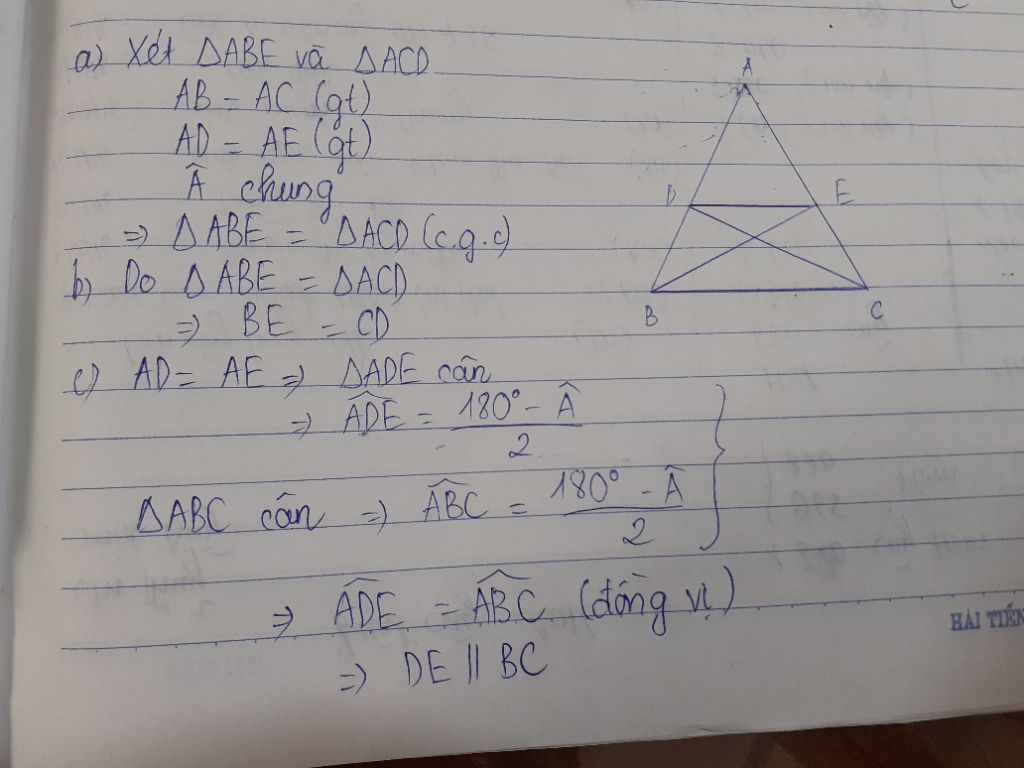 a) Xét ΔABE và ΔACD
AB = AC (gt)
AD = AE (gt)
Â chung
=> ΔABE = ΔACD (c.g.c)
b) Do ΔABE = ΔACD
=> BE = CD
c) AD = AE => ΔADE cân
=> \widehat{ADE} = \frac{180° - Â}{2}
ΔABC cân => \widehat{ABC} = \frac{180° - Â}{2}
=> \widehat{ADE} = \widehat{ABC} (đồng vị)
=> DE // BC
A
D
E
B
C
HẢI TIẾN